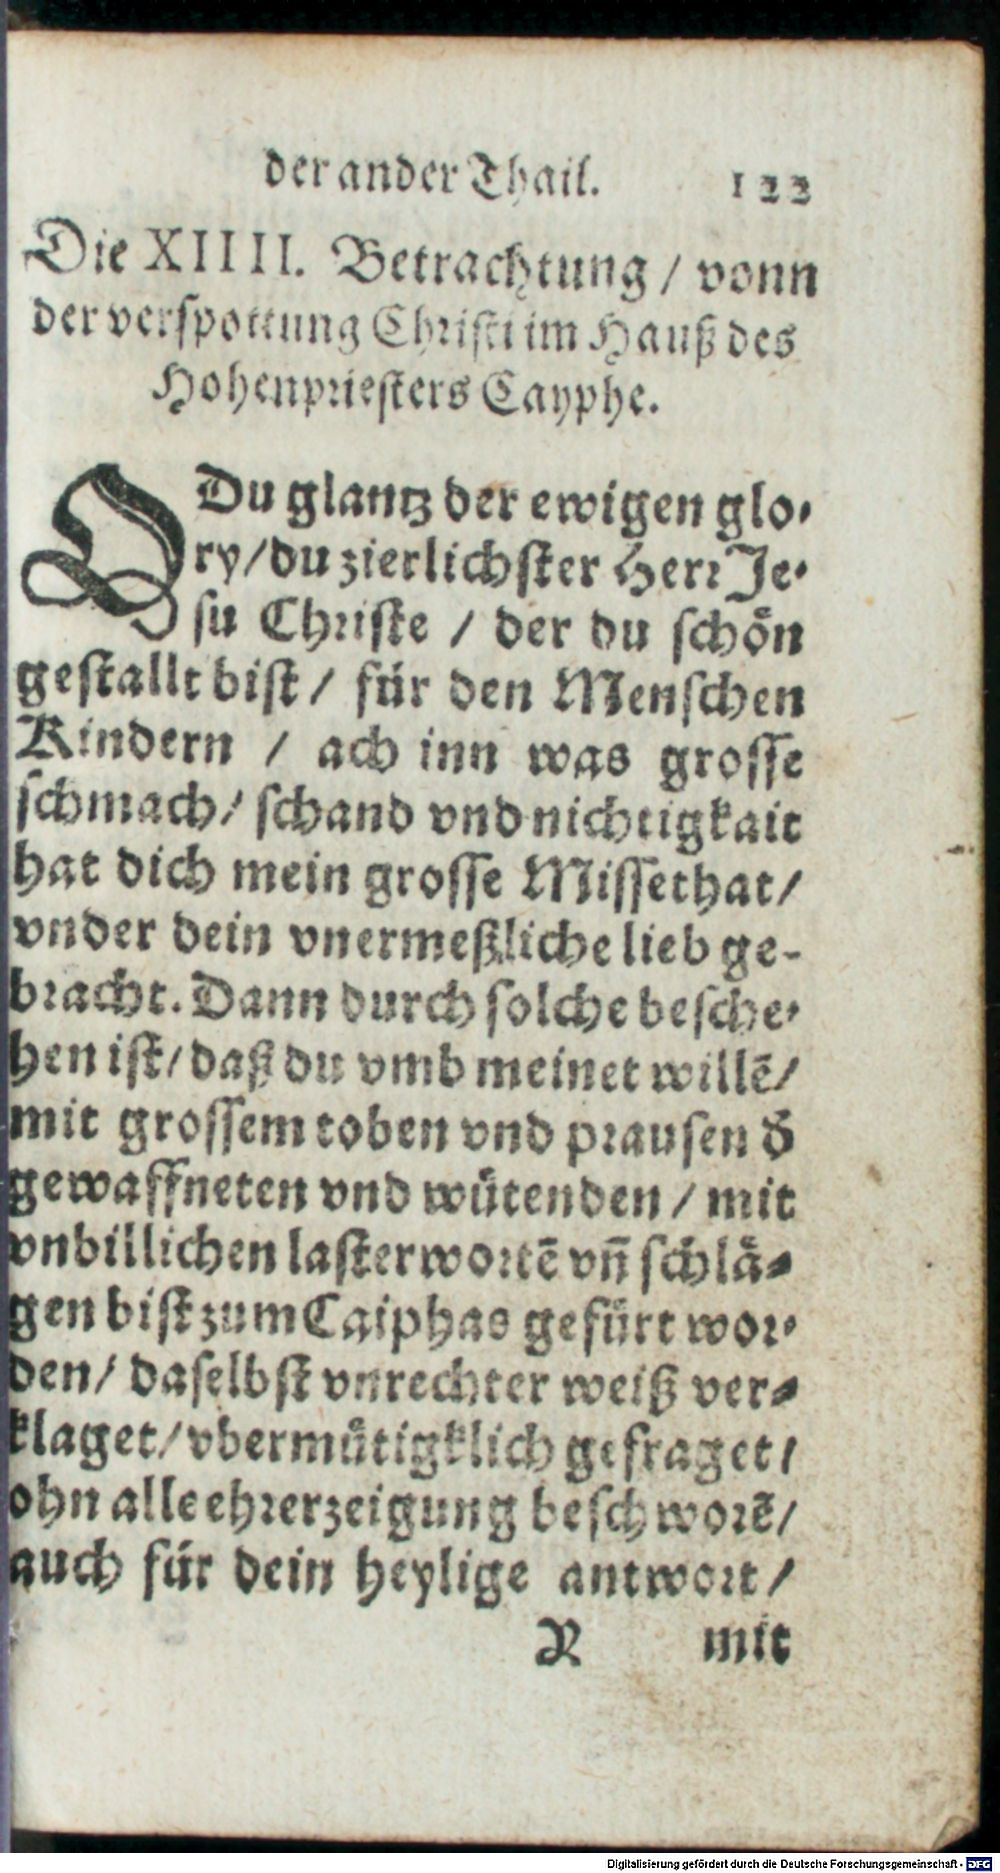 der ander Thail. 122
Die XIIII. Betrachtung / vonn
der verspottung Christi im Hauß des
Hohenpriesters Cayphe.
O Du glantz der ewigen glo-
ry / du zierlichster Herr Je-
su Christe / der du schön
gestallt bist / für den Menschen
Kindern / ach inn was grosse
schmach / schand vnd nichtigkait
hat dich mein grosse Missethat /
vnder dein vnermeßliche lieb ge-
bracht. Dann durch solche besche-
hen ist / daß du vmb meinet willē /
mit grossem toben vnd prausen d̄
gewaffneten vnd wütenden / mit
vnbillichen lasterwortē vñ schlä-
gen bist zum Caiphas gefürt wor-
den / daselbst vnrechter weiß ver-
klaget / vbermütigklich gefraget /
ohn alle ehrerzeigung beschworē /
auch für dein heylige antwort /
R mit
Digitalisierung gefördert durch die Deutsche Forschungsgemeinschaft - DFG